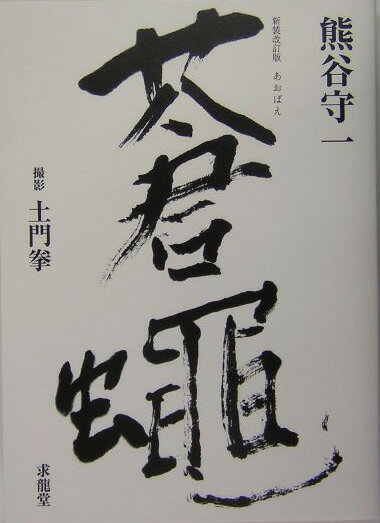 熊谷守一
新装改訂版 あおばえ
蒼蠅
撮影 土門拳
求龍堂